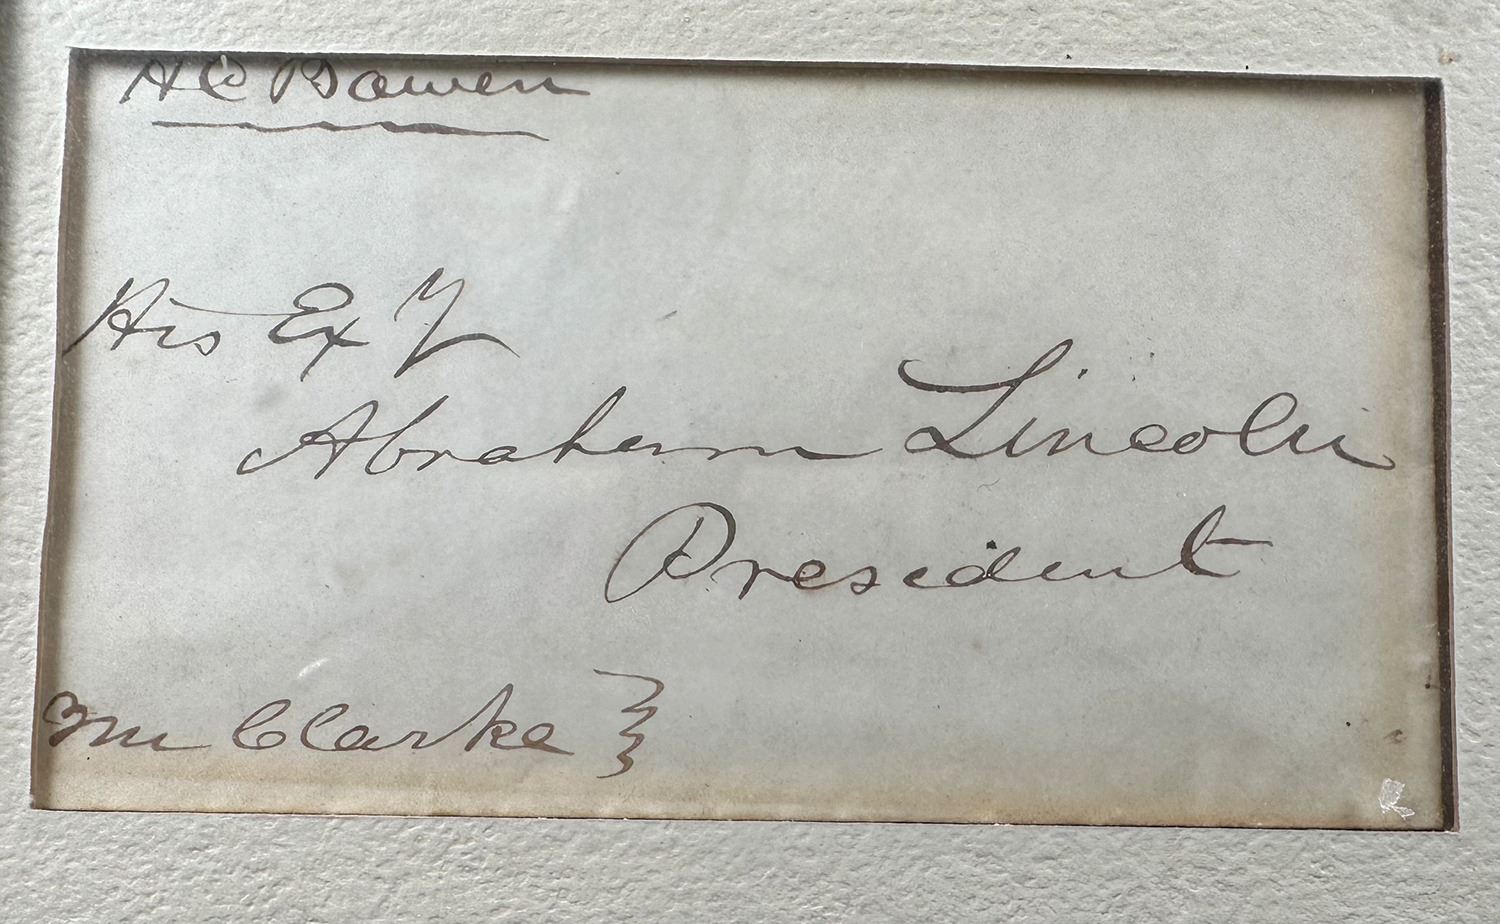 H C Bowen
His Ex y
Abraham Lincoln
President
Mr Clarke }